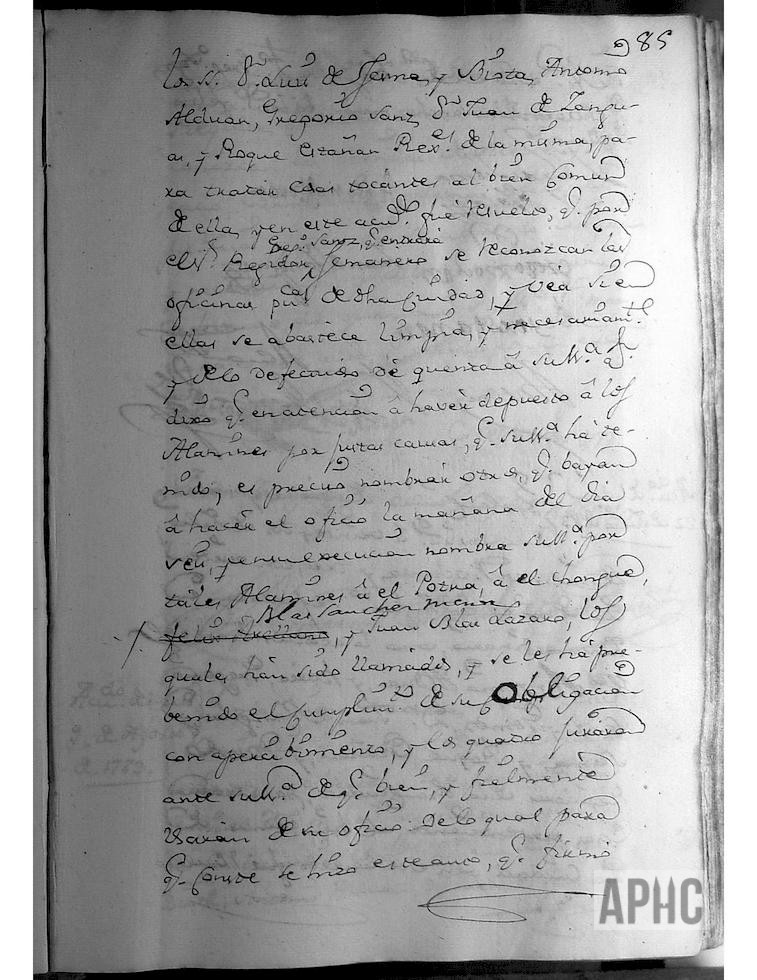 985
los SS. Dn. Luis de Serna, y Biota, Antonio
Alduan, Gregorio Sanz, Dn. Juan de Zangu-
as, y Roque Estañan Rexes. de la misma, pa-
ra tratar cosas tocantes al bien Comun
de ella, y en este acdo. fué resuelto, q. por
el Sr. Regidor Semanero se reconozcan las
Grego. Sanz, q. entrará
oficinas pucas de dha Ciudad, y vea si en
ellas se abastece limpia, y necesariamte.
y de lo defectuoso dé quenta â su Md. q.
dixo q. en atencion â haver depuesto â los
Alamines por justas causas, q. su Md. há te-
nido, es preciso nombrar otros, q. bayan
â hacer el oficio la mañana del dia
seis, y en su execucion nombra su Md. por
tales Alamines â el Potra, â el Chongue,
Blas Sanchez menor
felix Arellano, y Juan Blas Lazaro, los
quales hán sido llamados, y se les há pre-
benido el cumplimto. de su Obligacion
con apercibimiento, y los quatro juraron
ante su Md. de q. bien, y fielmente
usarán de su oficio. De lo qual para
q. conste se hizo este auto, q. firmó
APHC